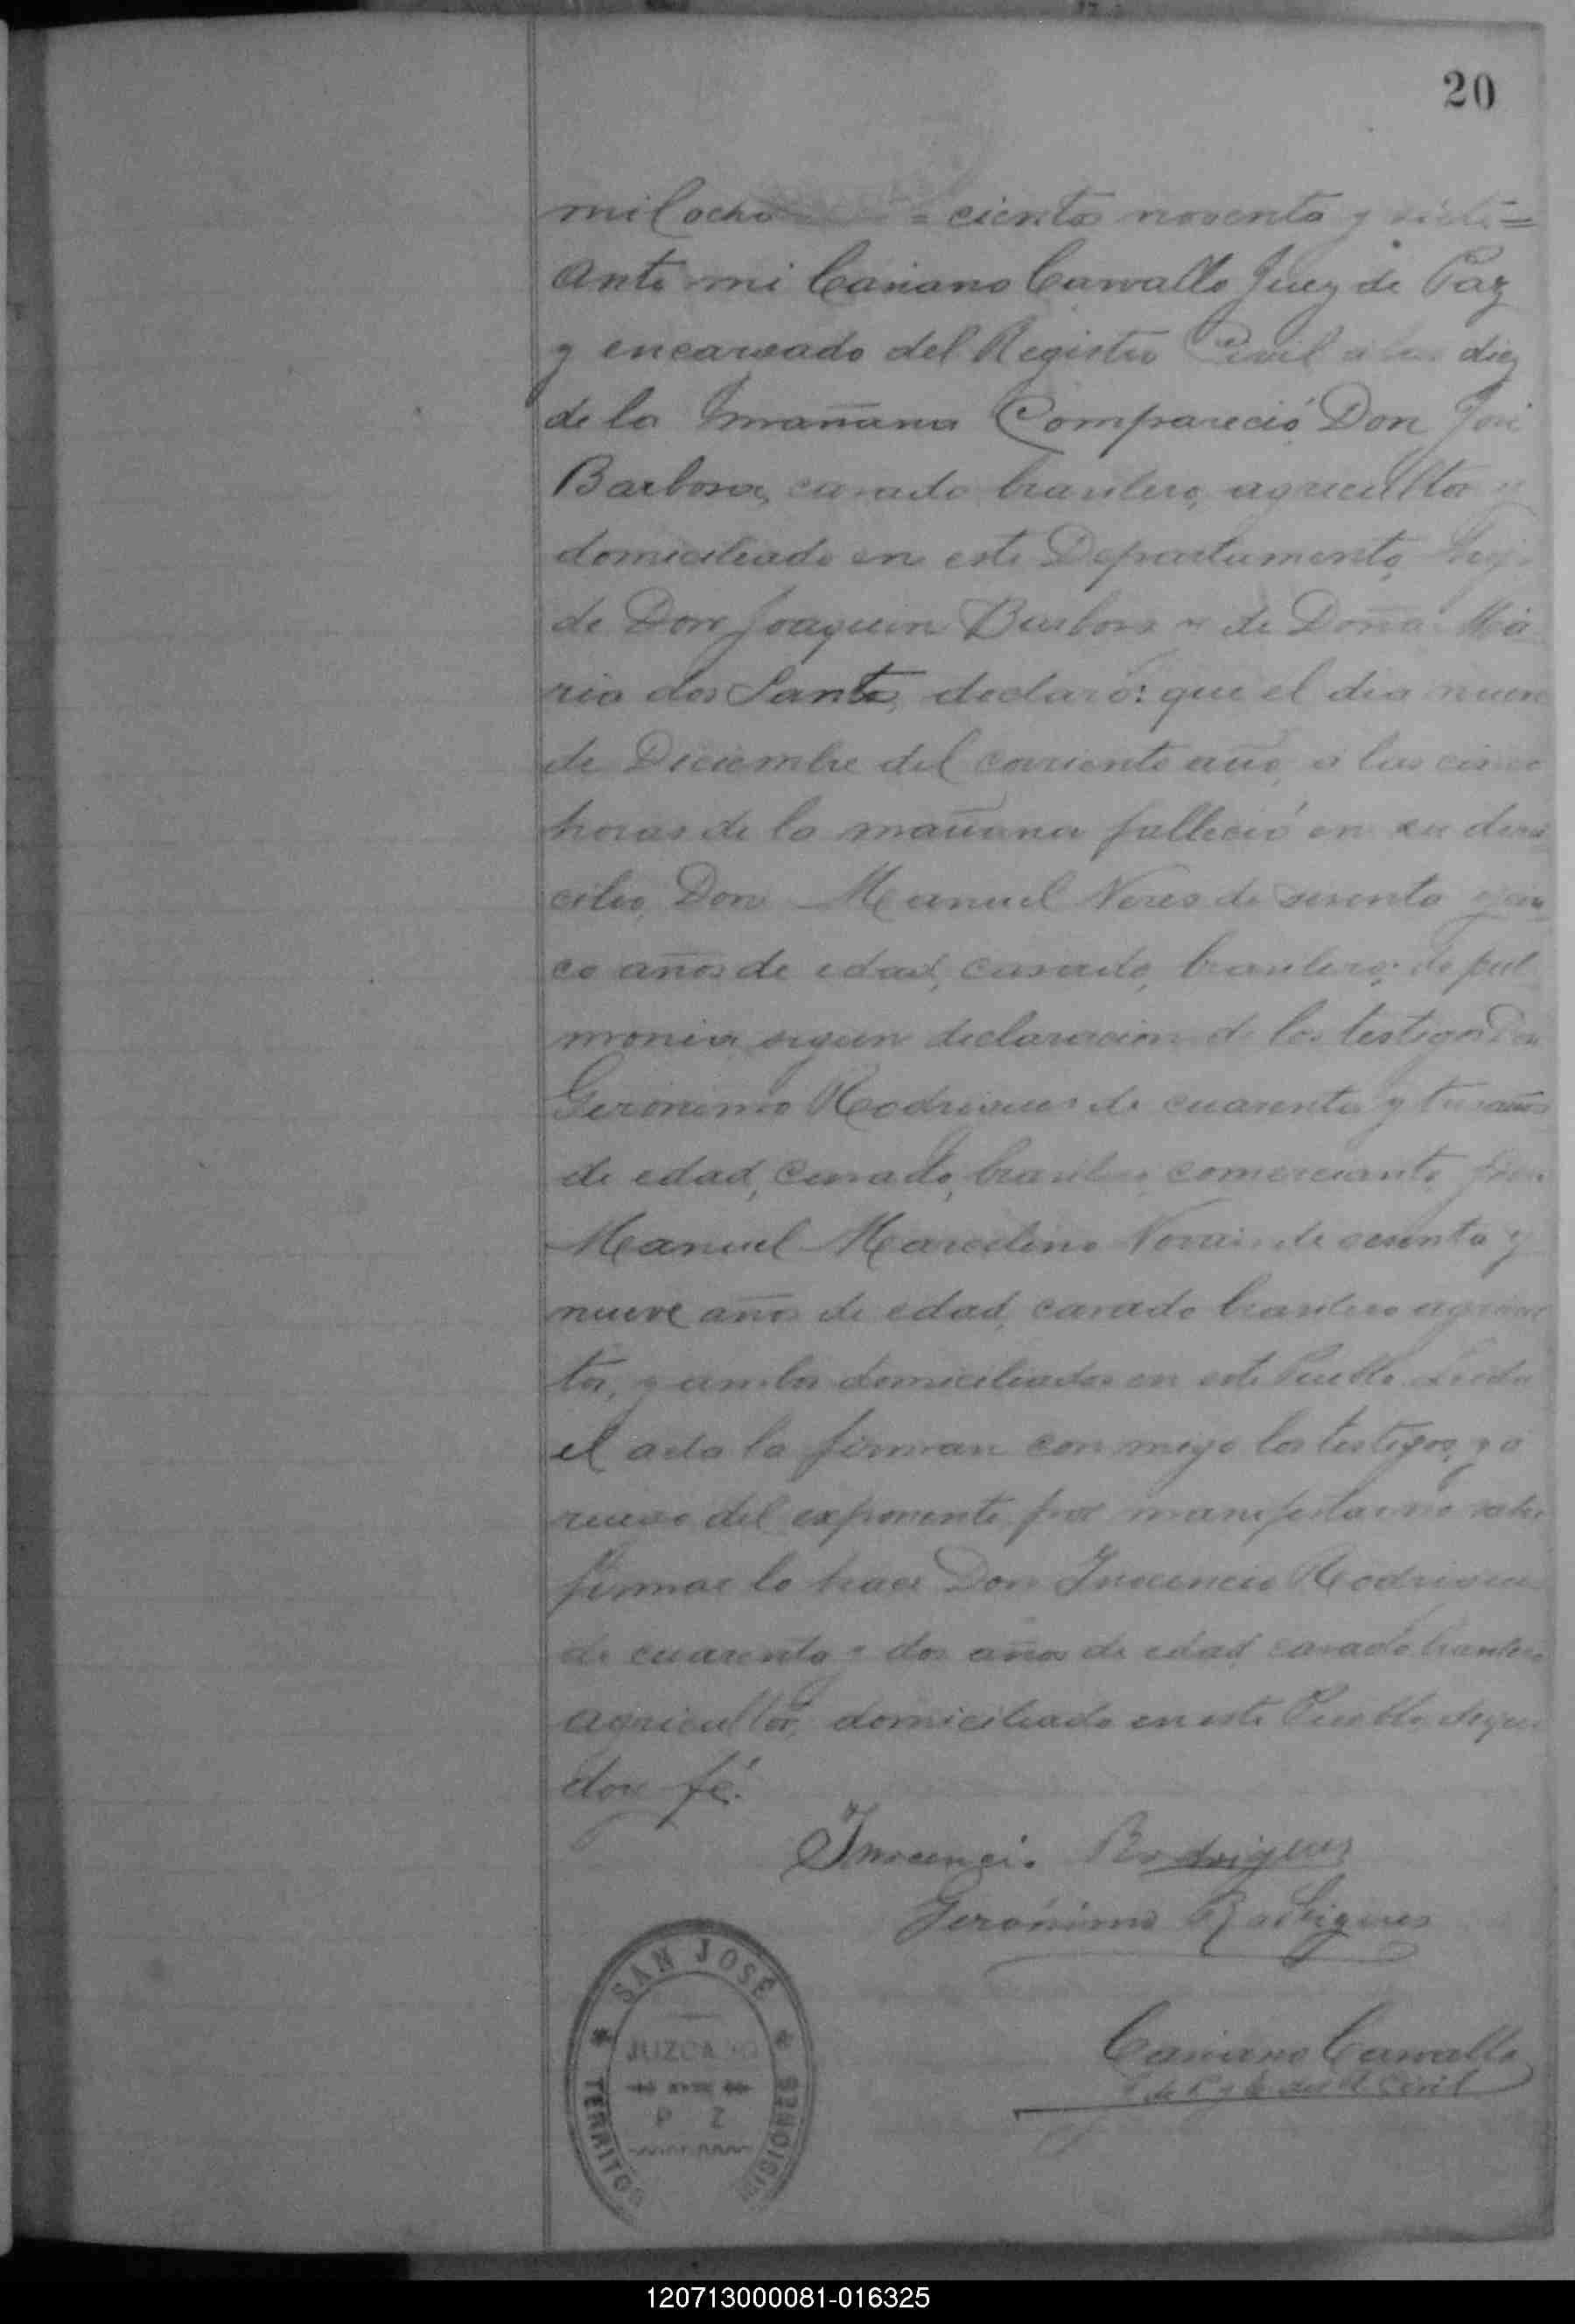 20
mil ocho cientos noventa y siete=
Ante mi Casiano Carvallo Juez de Paz
y encargado del Registro Civil a las diez
de la mañana Compareció Don José
Barbosa, casado brasilero, agricultor y
domiciliado en este Departamento, hijo
de Don Joaquin Barbosa y de Doña Ma
ria dos Santo, declaró: que el dia nueve
de Diciembre del corriente año, a las cinco
horas de la mañana falleció en su domi
cilio, Don Manuel Neves de sesenta y cin
co años de edad, casado, brasilero; de pul
monia segun declaracion de los testigos Don
Geronimo Rodrigues de cuarenta y tres años
de edad, casado, brasilero comerciante
Manuel Marcelino de sesenta y
nueve años de edad, casado brasilero agricul
tor, y ambos domiciliados en este Pueblo. Leida
el acta la firman con migo los testigos, y a
ruego del exponente por manifestar no saber
firmar lo hace Don Inocencio Rodrigues
de cuarenta y dos años de edad casado brasilero
agricultor, domiciliado en este Pueblo, de que
doy fé.
Inocencio Rodrigues
Gerónimo Rodrigues
Casiano Carvallo
J de P y E del R Civil
SAN JOSÉ
JUZGADO
P Z
TERRITO
MISIONES
120713000081-016325